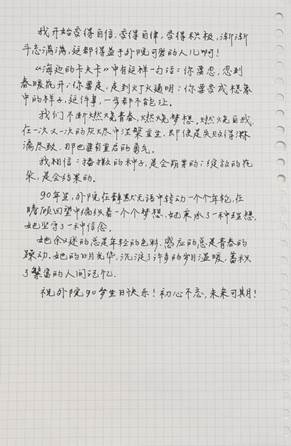 我开始变得自信，变得自律，变得积极，渐渐
斗志满满，这都得益于外院可爱的人儿啊！
《海边的卡夫卡》中有这样一句话：你要忍，忍到
春暖花开；你要走，走到灯火通明；你要变成想象中
的样子，这件事，一步都不能让。
我们不断燃烧青春，燃烧梦想，燃烧自我，
在一次又一次的灰烬中涅槃重生，即使是失败得淋
漓尽致，那也自有重启的勇气。
我相信：播撒的种子，是会萌芽的；绽放的花
朵，是会结果的。
90年里，外院在静默无语中转动一个个年轮，在
瞻顾凝望中编织着一个个梦想。她秉承了一种理想，
她坚守了一种信念。
她众观的总是年轻的色彩，感应的总是青春的
躁动。她的日月光华，沉淀了许多的岁月温暖，蓄积
了繁富的人间记忆。
祝外院90岁生日快乐！初心不忘，未来可期！